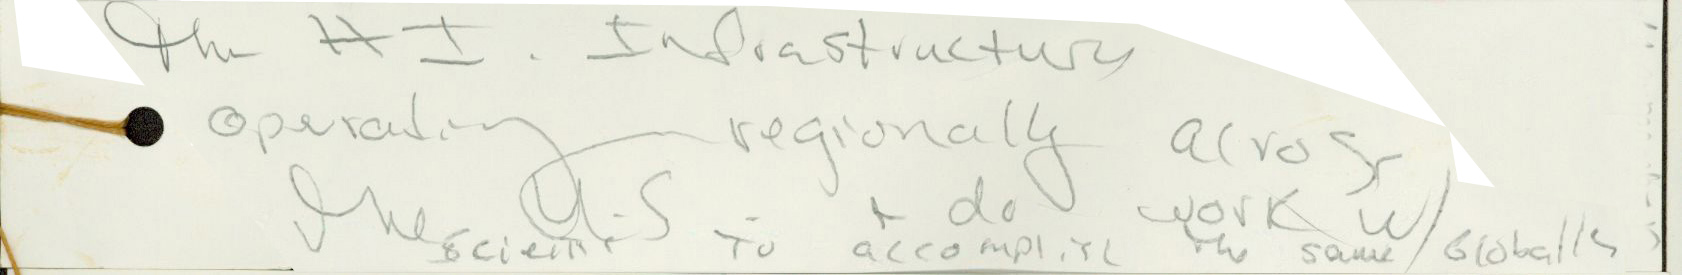 The H I. Infrastructure
operating regionally across
the U.S + do work w/
scients to accomplish the same globally